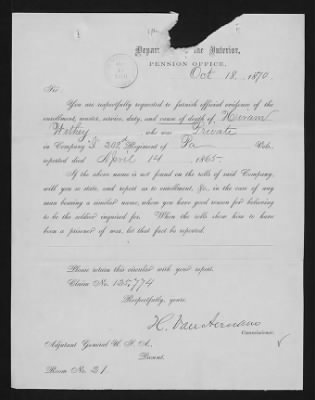 Department of the Interior,
PENSION OFFICE,
Oct 18, 1870.
Sir:
You are respectfully requested to furnish official evidence of the
enrollment, muster, service, duty, and cause of death of Hiram
who was Private
in Company "I" 202d Regiment of Pa Vols.
reported died April 14 1865.
If the above name is not on the rolls of said Company,
will you so state, and report as to enrollment, &c., in the case of any
man bearing a similar name, whom you have good reason for believing
to be the soldier inquired for. When the rolls show him to have
been a prisoner of war, let that fact be reported.
Please return this circular with your report.
Claim No. 135,774
Respectfully, yours,
H. Van Aernam
Commissioner.
Adjutant General U. S. A.,
Present.
Room No. 21.